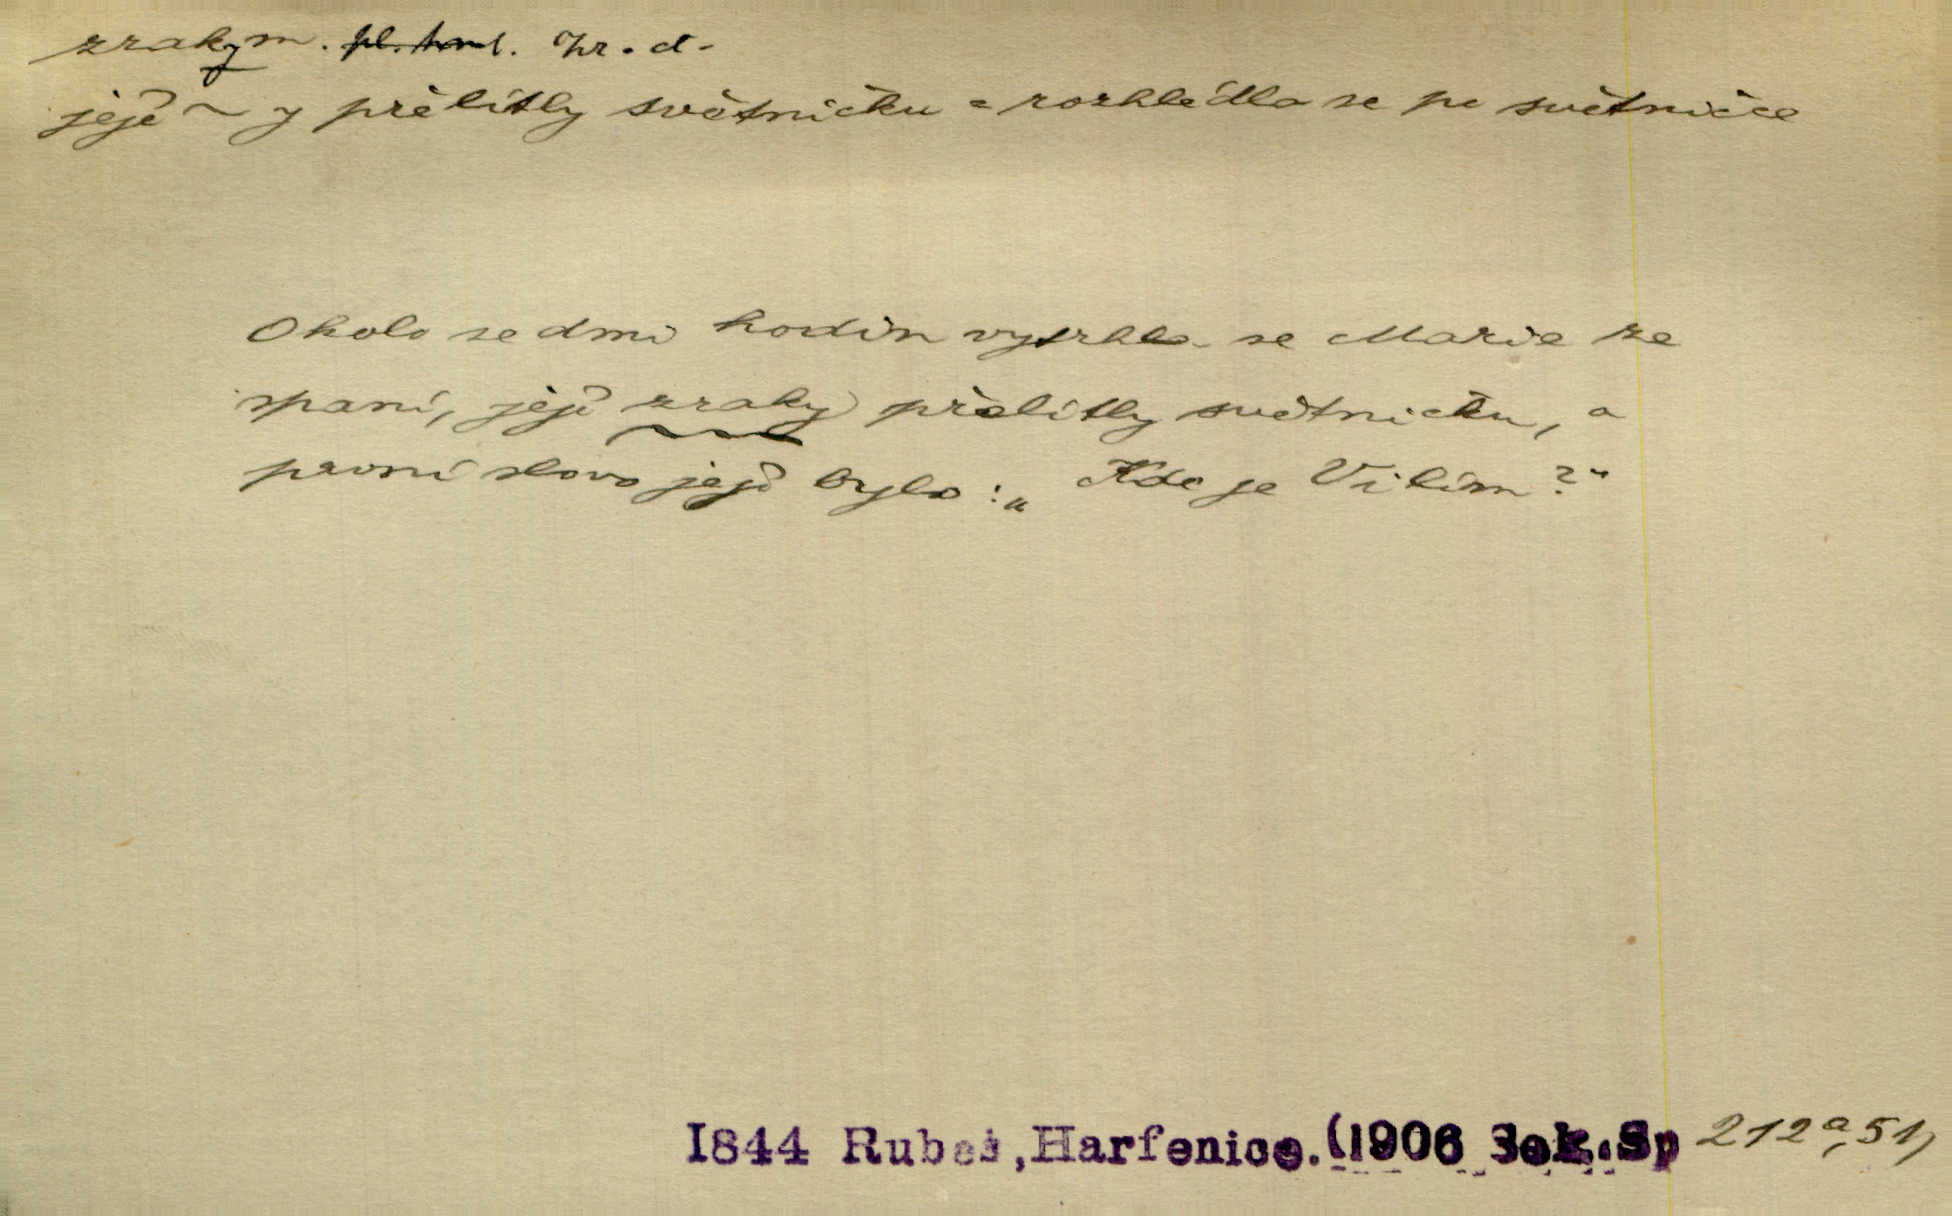 zraky m. pl. zr. d.
její ~ y přelítly světničku = rozhlédla se po světničce
Okolo sedmi hodin vytrhla se Marie ze
spaní, její zraky přelítly světničku, a
první slovo její bylo: „Kde je Vilím?“
1844 Rubeš, Harfenice. (1906 Sp 212a, 51)